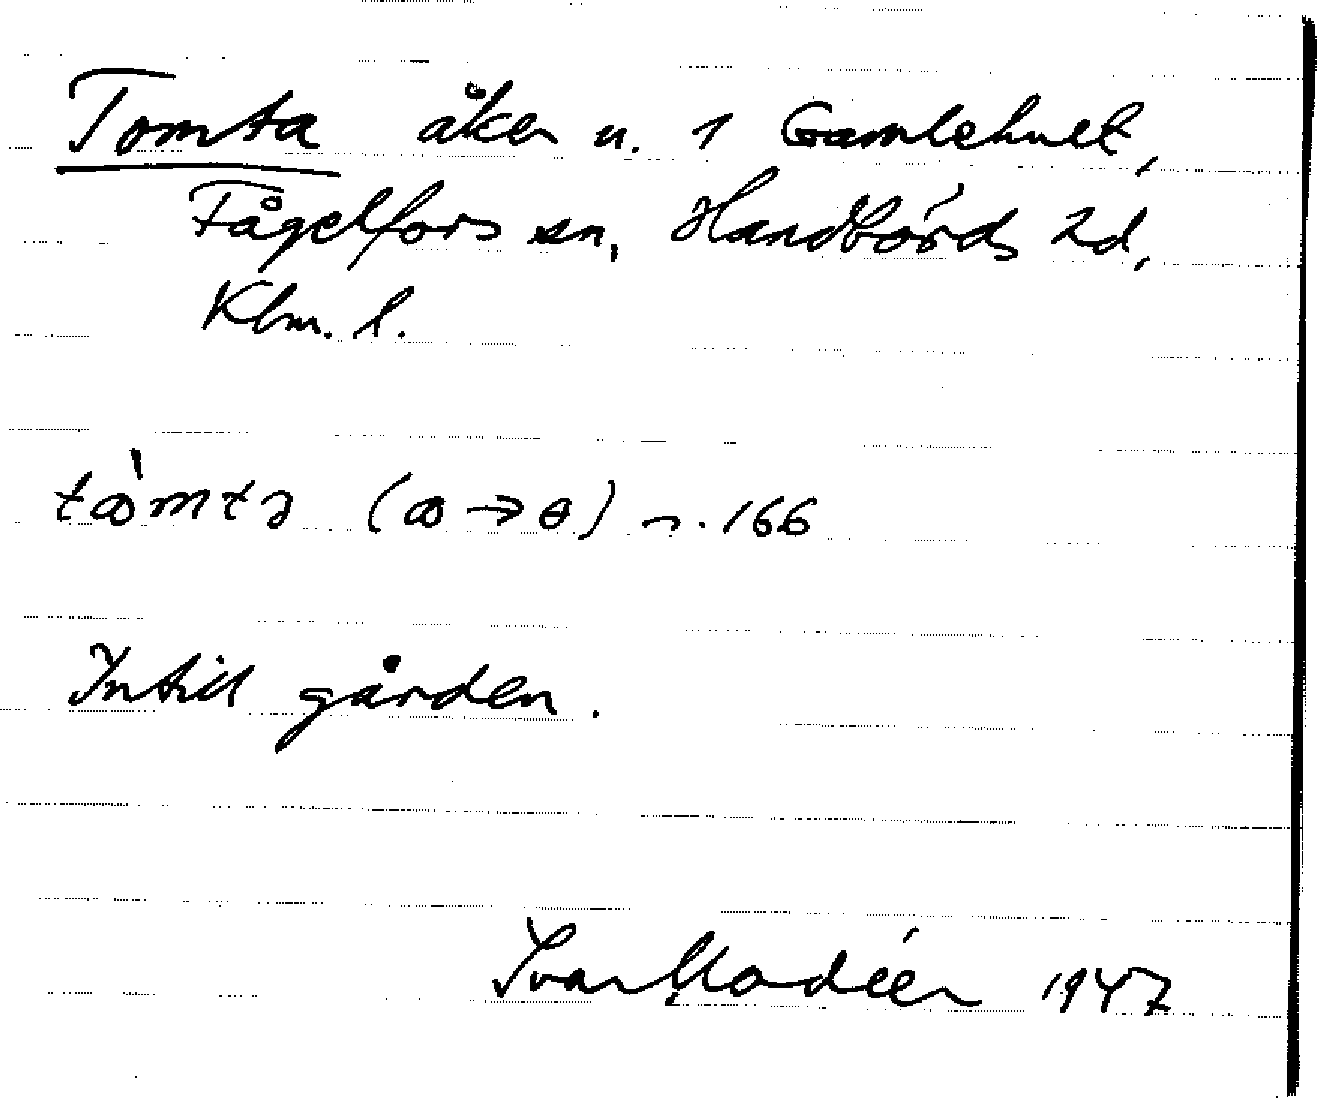 Tomta åker n. 1 Gamlehult,
Fågelfors sn, Handbörds hd,
Klm. l.
tꝏ̀mtɔ (ꝏ → ɵ) n. 166
Intill gården.
Ivar Modéer 1947